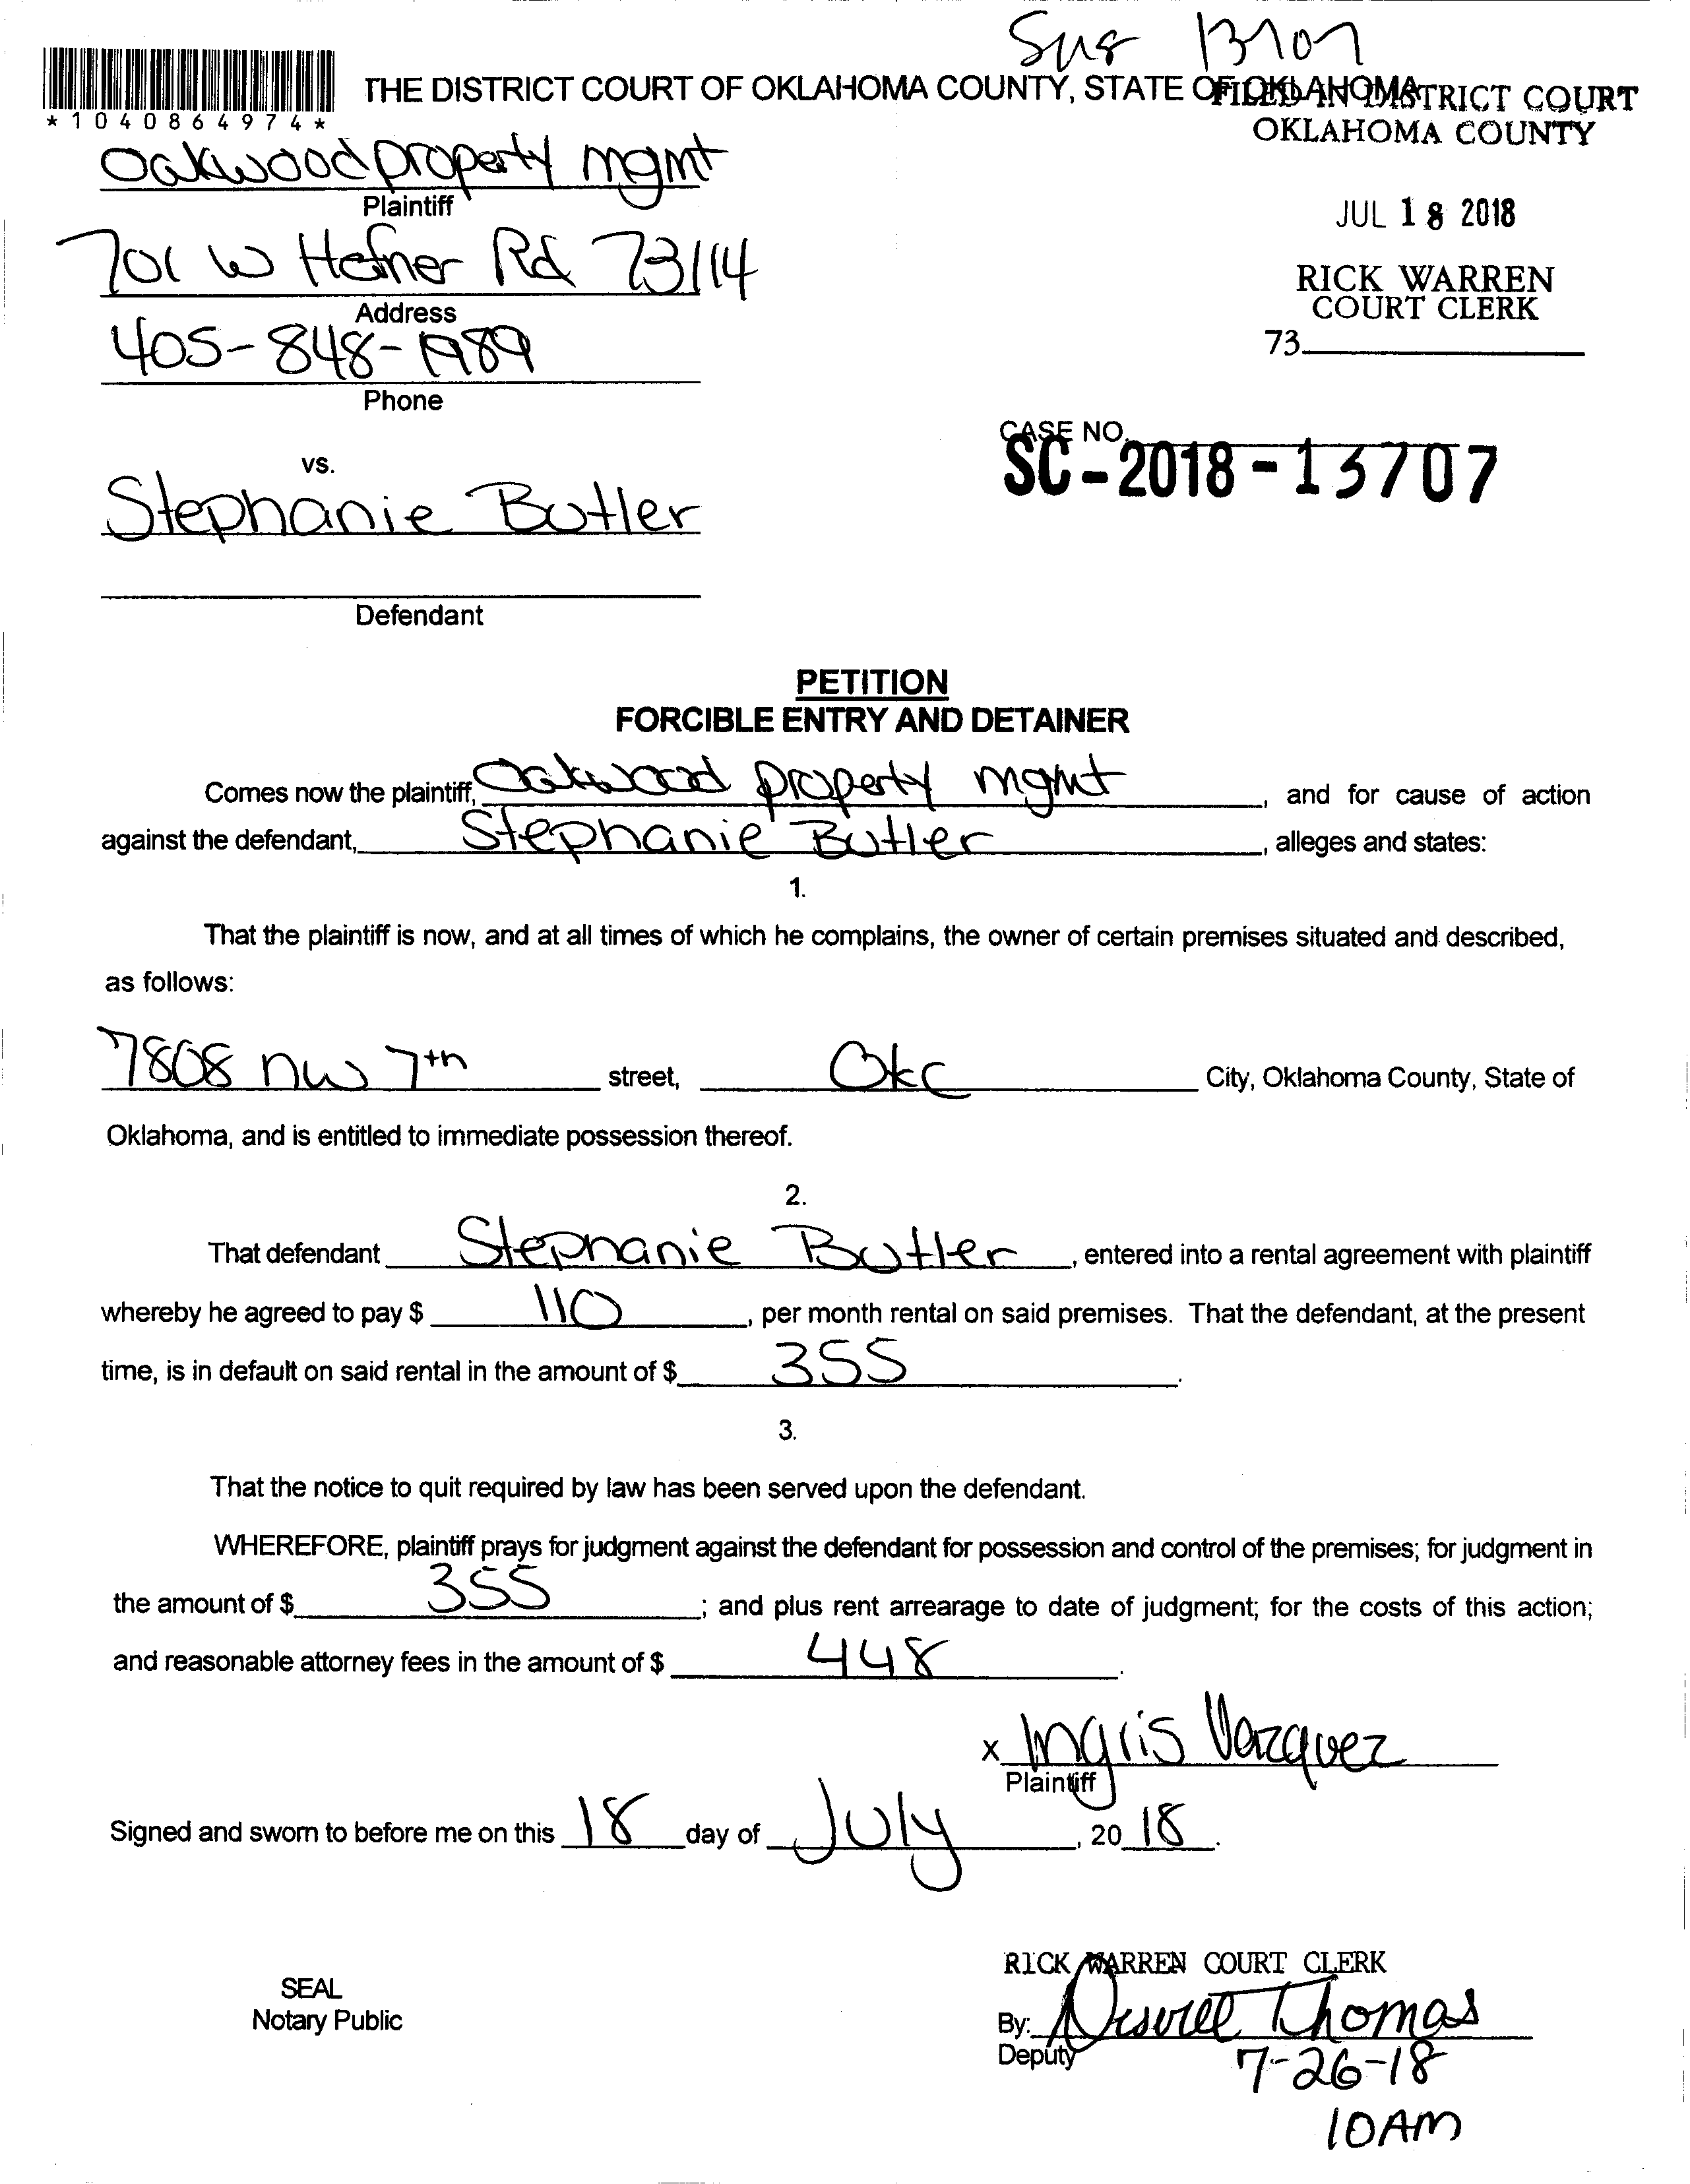 THE DISTRICT COURT OF OKLAHOMA COUNTY, STATE OF OKLAHOMA
FILED IN DISTRICT COURT
OKLAHOMA COUNTY
*1040864974*
Oakwood property mgmt
Plaintiff
JUL 18 2018
701 W Hefner Rd 73114
Address
RICK WARREN
COURT CLERK
405-848-1989
Phone
73
CASE NO.
SC-2018-13707
vs.
Stephanie Butler
Defendant
PETITION
FORCIBLE ENTRY AND DETAINER
Comes now the plaintiff, Oakwood property mgmt, and for cause of action
against the defendant, Stephanie Butler, alleges and states:
1.
That the plaintiff is now, and at all times of which he complains, the owner of certain premises situated and described,
as follows:
7808 NW 7th street, Okc City, Oklahoma County, State of
Oklahoma, and is entitled to immediate possession thereof.
2.
That defendant Stephanie Butler, entered into a rental agreement with plaintiff
whereby he agreed to pay $ 110, per month rental on said premises. That the defendant, at the present
time, is in default on said rental in the amount of $ 355.
3.
That the notice to quit required by law has been served upon the defendant.
WHEREFORE, plaintiff prays for judgment against the defendant for possession and control of the premises; for judgment in
the amount of $ 355; and plus rent arrearage to date of judgment; for the costs of this action;
and reasonable attorney fees in the amount of $ 448.
x Ingris Vazquez
Plaintiff
Signed and sworn to before me on this 18 day of July, 20 18.
RICK WARREN COURT CLERK
SEAL
Notary Public
By: Thomas
Deputy
7-26-18
10AM